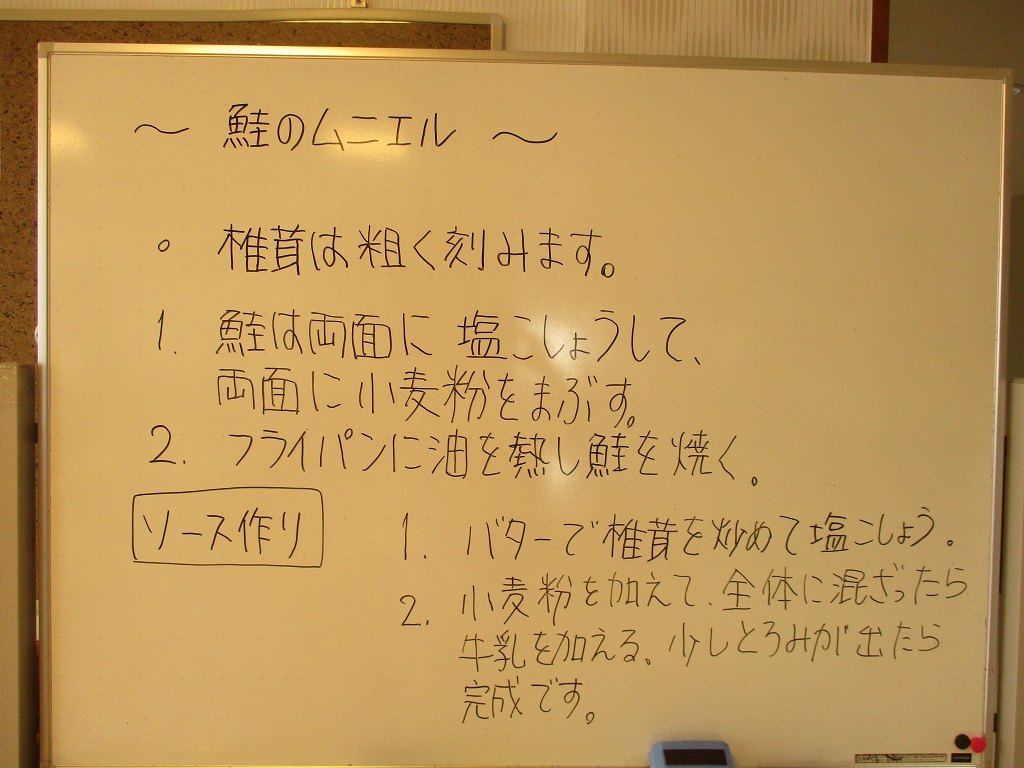 ～ 鮭のムニエル ～
。 椎茸は粗く刻みます。
1. 鮭は両面に 塩こしょうして、
両面に小麦粉をまぶす。
2. フライパンに油を熱し鮭を焼く。
ソース作り
1. バターで椎茸を炒めて塩こしょう。
2. 小麦粉を加えて、全体に混ざったら
牛乳を加える。少しとろみが出たら
完成です。